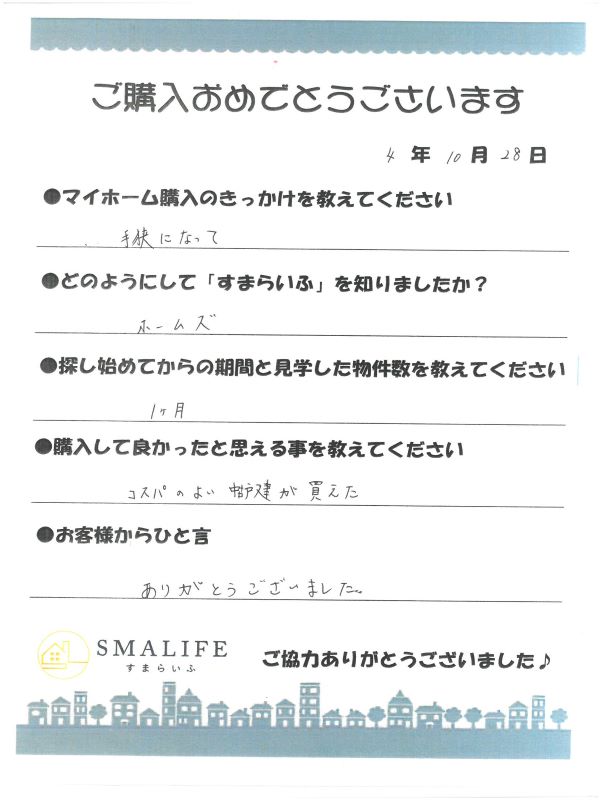 ご購入おめでとうございます
4 年 10 月 28 日
●マイホーム購入のきっかけを教えてください
手狭になって
●どのようにして「すまらいふ」を知りましたか？
ホームズ
●探し始めてからの期間と見学した物件数を教えてください
1ヶ月
●購入して良かったと思える事を教えてください
コスパのよい 中古戸建が 買えた
●お客様からひと言
ありがとうございました。
SMALIFE
すまらいふ
ご協力ありがとうございました♪